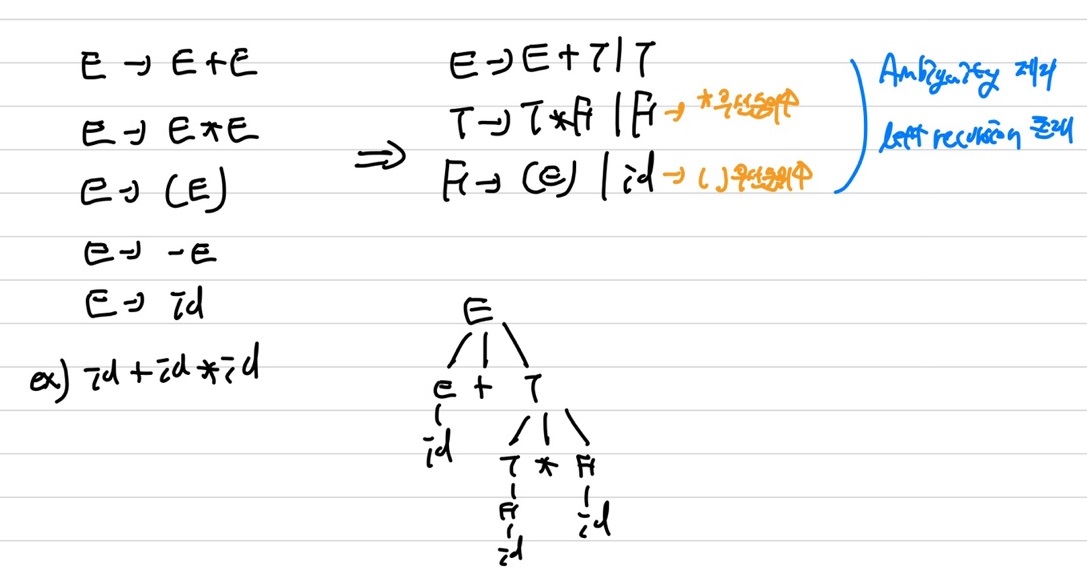 E → E+E
E → E*E
E → (E)
E → -E
E → id
ex) id + id * id
⇒
E → E + T | T
T → T*F | F → *우선순위
F → (E) | id → ( ) 우선순위
Ambiguity 제거
left recursion 존재
E
E + T
id
T * F
F id
id